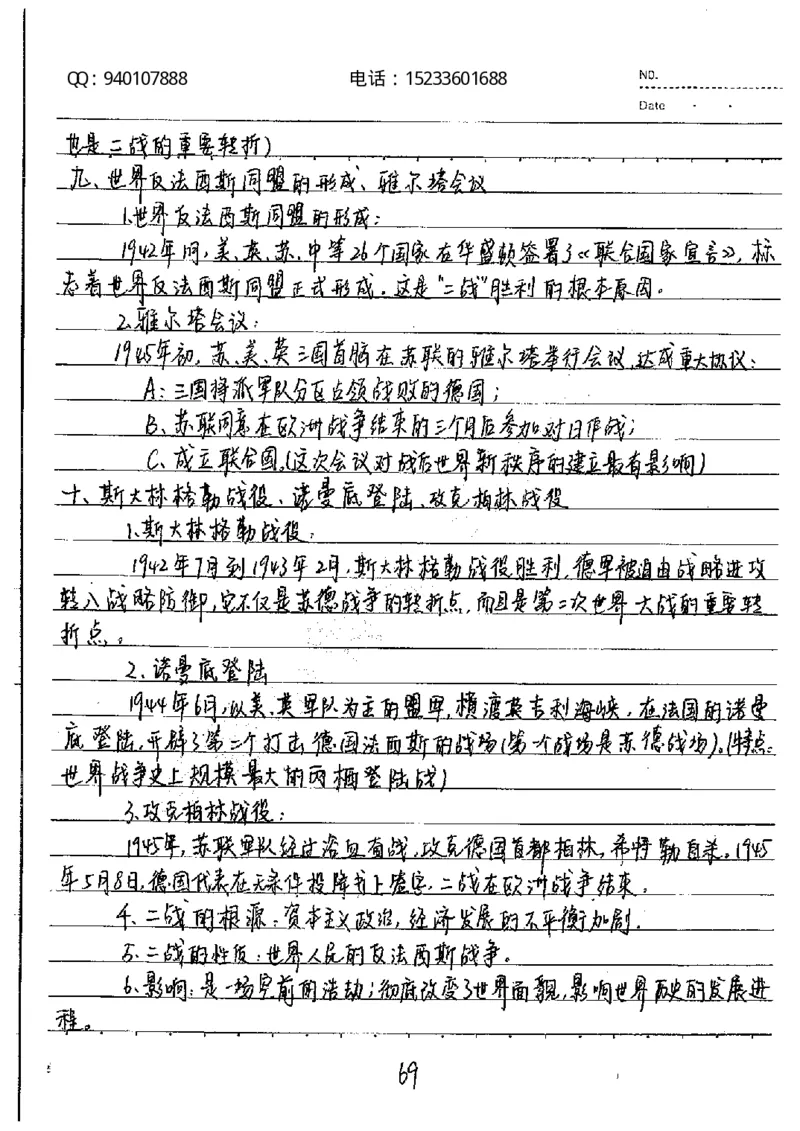 QQ：940107888 电话：15233601688 NO.
Date · ·
也是二战的重要转折)
九、世界反法西斯同盟的形成、雅尔塔会议
1.世界反法西斯同盟的形成：
1942年间，美、英、苏、中等26个国家在华盛顿签署了《联合国家宣言》，标
志着世界反法西斯同盟正式形成。这是“二战”胜利的根本原因。
2.雅尔塔会议：
1945年初，苏、美、英三国首脑在苏联的雅尔塔举行会议，达成重大协议：
A：三国将派军队分区占领战败的德国；
B、苏联同意在欧洲战争结束的三个月后参加对日作战；
C、成立联合国。(这次会议对战后世界新秩序的建立最有影响)
十、斯大林格勒战役、诺曼底登陆、攻克柏林战役
1.斯大林格勒战役：
1942年7月到1943年2月，斯大林格勒战役胜利，德军被迫由战略进攻
转入战略防御，它不仅是苏德战争的转折点，而且是第二次世界大战的重要转
折点。
2、诺曼底登陆
1944年6月，以美、英军队为主的盟军，横渡英吉利海峡，在法国的诺曼
底登陆，开辟了第二个打击德国法西斯的战场(第一个战场是苏德战场)。(特点：
世界战争史上规模最大的两栖登陆战)
3.攻克柏林战役：
1945年，苏联军队经过浴血奋战，攻克德国首都柏林，希特勒自杀。1945
年5月8日，德国代表在无条件投降书上签字，二战在欧洲战争结束。
4、二战的根源：资本主义政治，经济发展的不平衡加剧.
5.二战的性质：世界人民的反法西斯战争。
6.影响：是一场空前的浩劫；彻底改变了世界面貌，影响世界历史的发展进
程。
69